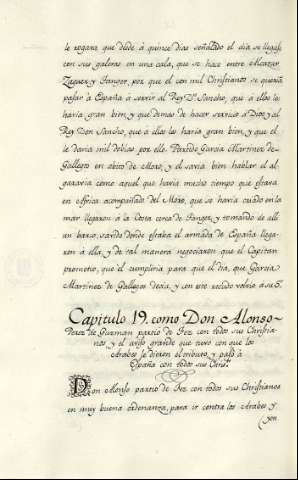 le rogaua que desde à quince dias señalado el dia se llegase
con sus galeras en una cala, que se hace entre Alcazar
Zaguer y Tanger, por que el con mil Christianos se queria
pasar à España à servir al Rey Dn. Sancho, que à ellos les
haria gran bien y que demas de hacer servicio à Dios y al
Rey Don Sancho, que à ellos les haria gran bien, y que el
le daria mil doblas por ello. Partido Garcia Martinez de
Gallegos en abito de Moro, y el savia bien hablar el al
garavia como aquel que havia mucho tiempo que estava
en Africa acompañado del Moro, que se havia criado en la
mar llegaron à la Costa cerca de Tanger, y tomando de alli
un barco, savido donde estaba el armada de España llega-
ron à ella, y de tal manera negociaron que el Capitan
prometio, que el cumpliria para que el dia, que Garcia
Martinez de Gallegos decia, y con este recado volvio à su S.
Capitulo 19. como Don Alonso
Perez de Guzman partio de Fez con todos sus Christia-
nos, y el aviso grande que tuvo con que los
Arabes le dieron el tributo, y pasó à
España con todos sus
Don Alonso partio de Fez con todos sus Christianos
en muy buena ordenanza, para ir contra los Arabes y